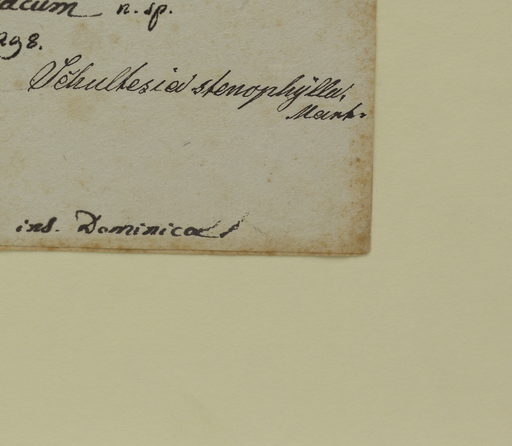 acum n. sp.
Schultesia stenophÿlla,
Mart.
ins. Dominica